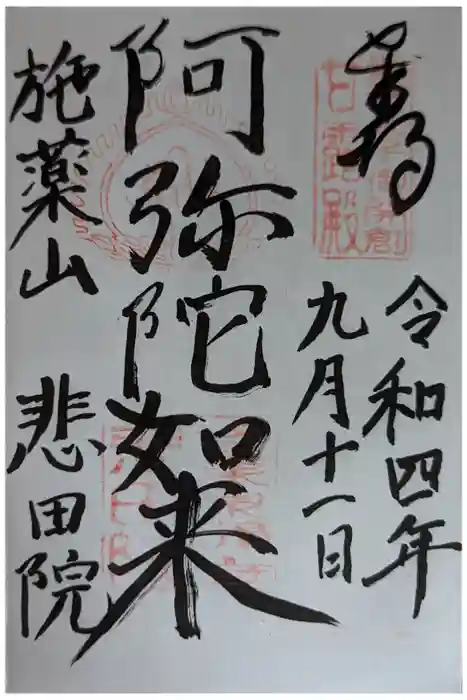 奉拝
令和四年
九月十一日
阿弥陀如来
施薬山 悲田院